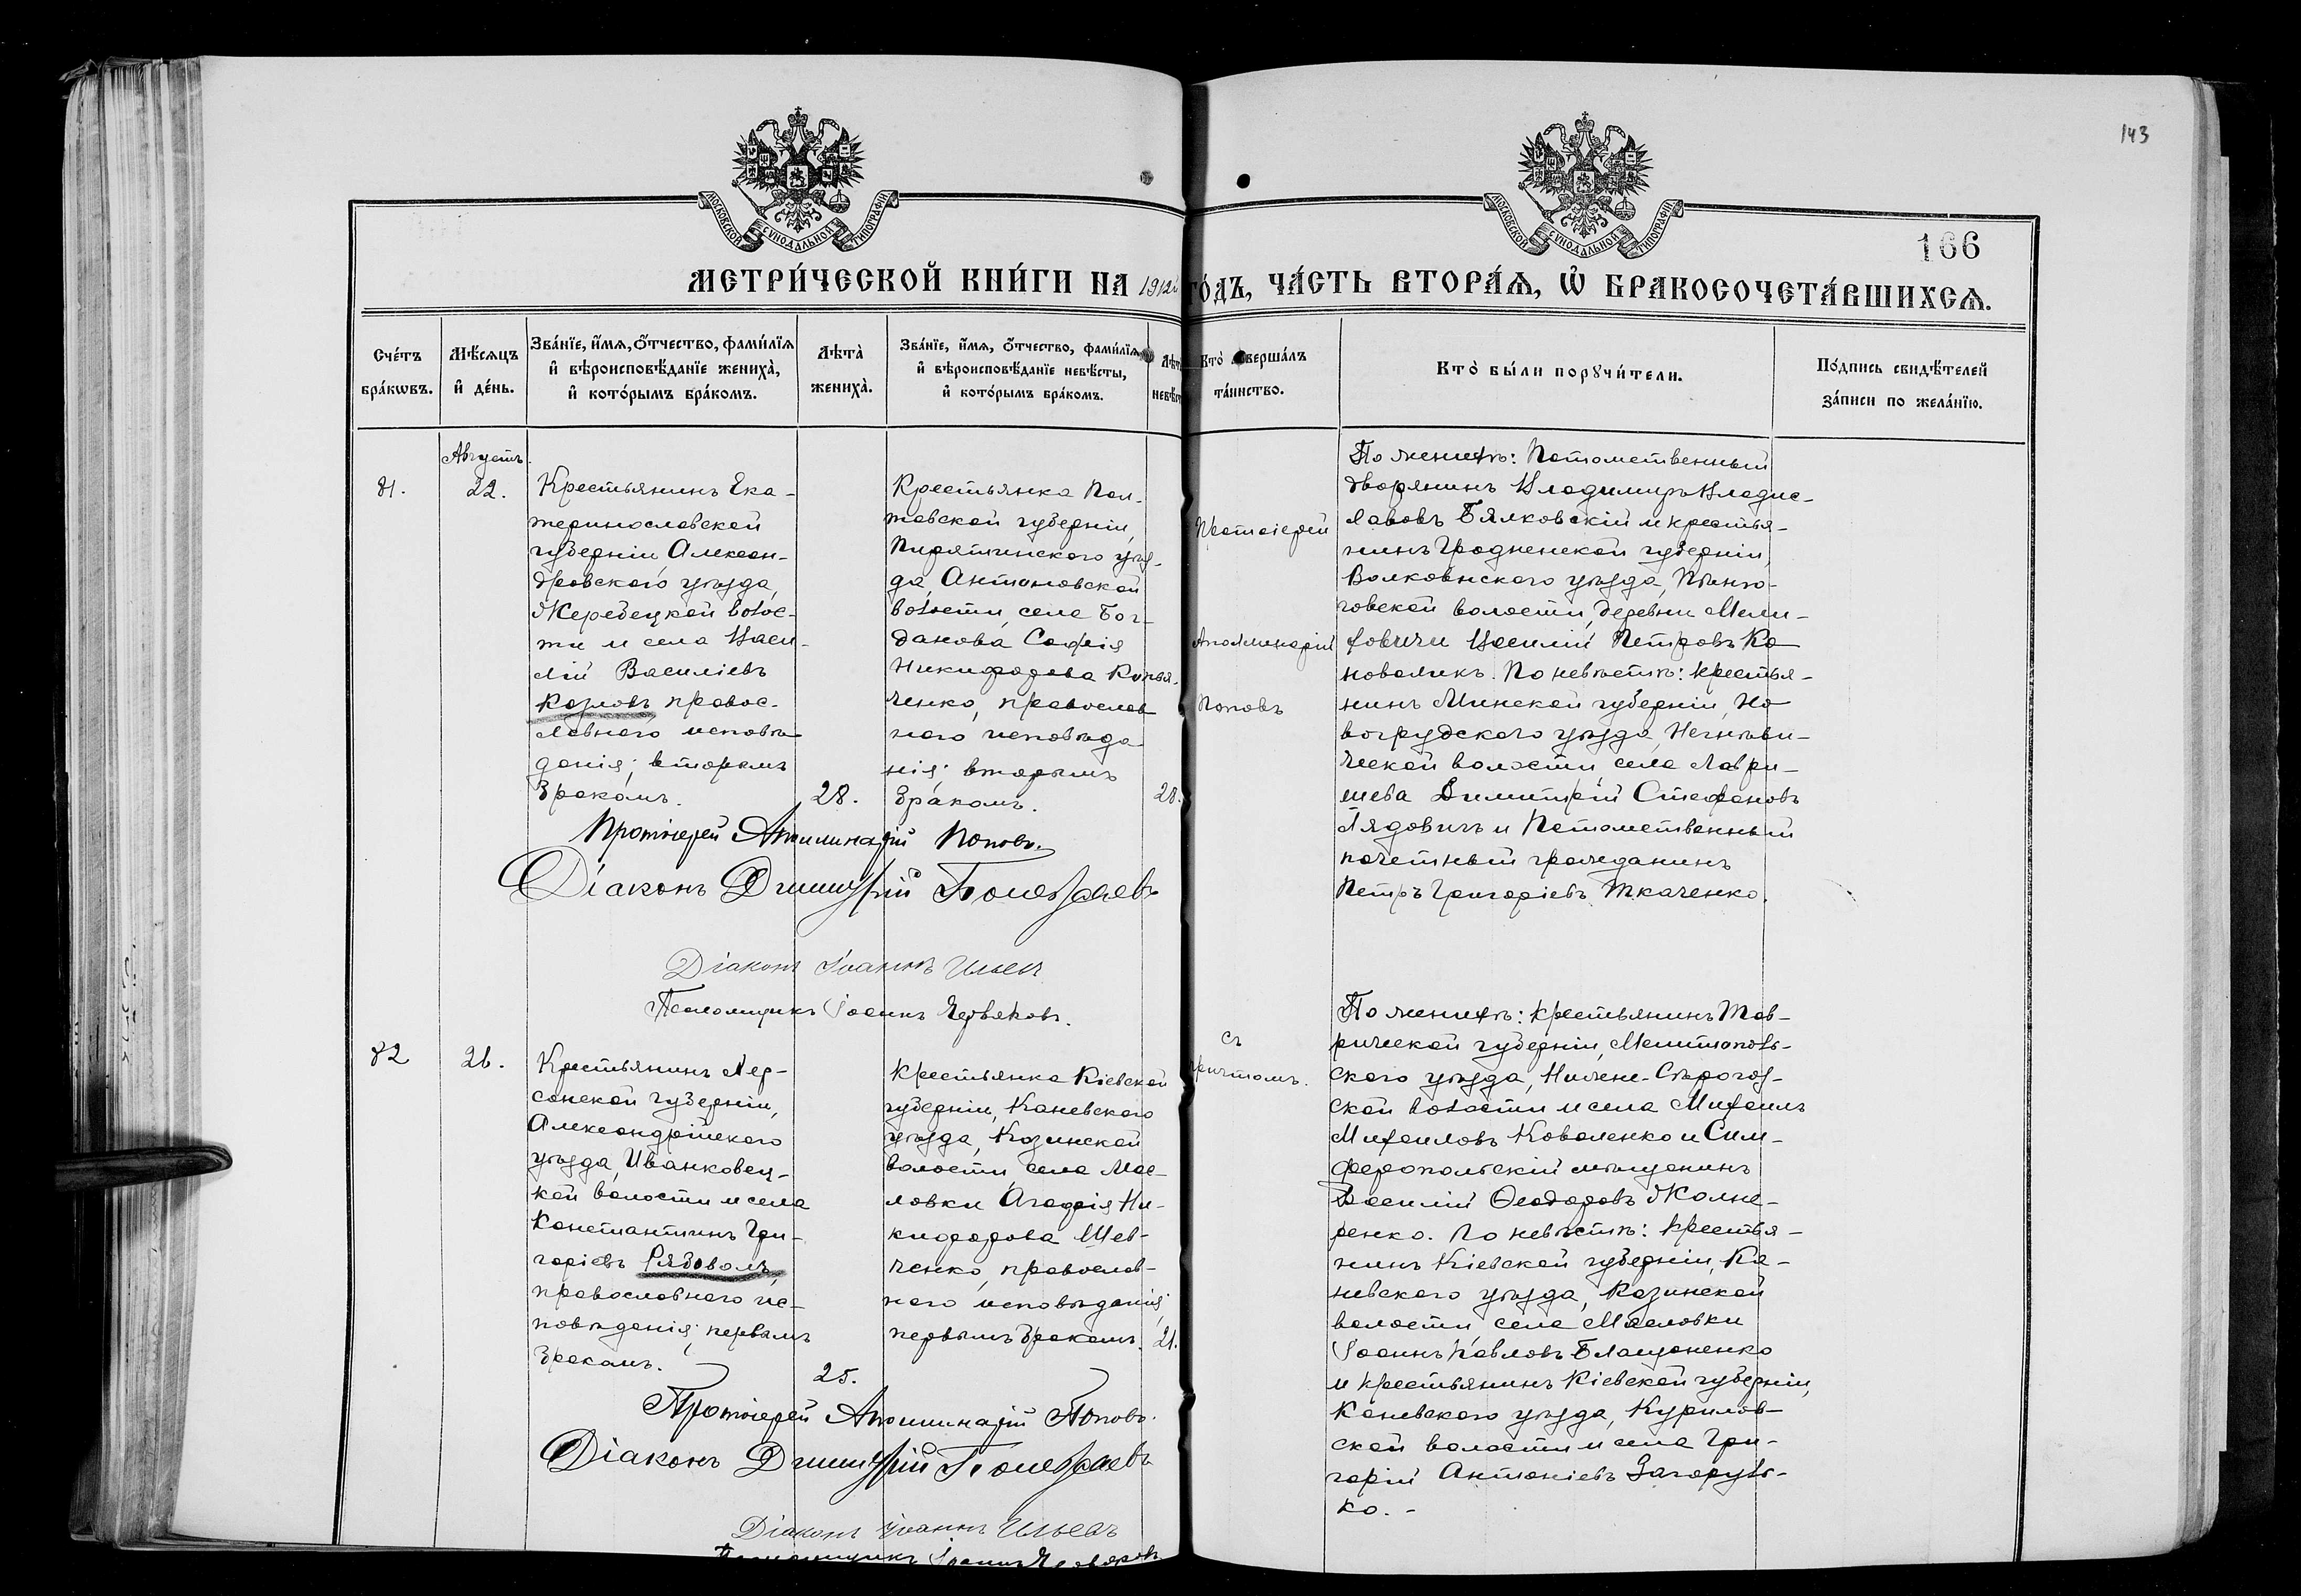 143
166
МОСКОВСКОЙ СѴНОДАЛЬНОЙ ТИПОГРАФІИ
МОСКОВСКОЙ СѴНОДАЛЬНОЙ ТИПОГРАФІИ
МЕТРИ́ЧЕСКОЙ КНИ́ГИ НА 1912й ГО́ДЪ, ЧА́СТЬ ВТОРА́Ѧ, Ѽ БРАКОСОЧЕТА́ВШИХСѦ.
Сче́тъ
бра́кѡвъ.
Мѣ́сѧцъ
и҆ де́нь.
Зва́нїе, и҆́мѧ, ѻ҆́тчество, фами́лїѧ
и҆ вѣроисповѣ́данїе жениха̀,
и҆ кото́рымъ бра́комъ.
Лѣта̀
жениха̀.
Зва́нїе, и҆́мѧ, ѻ҆́тчество, фами́лїѧ
и҆ вѣроисповѣ́данїе невѣ́сты,
и҆ кото́рымъ бра́комъ.
Кто̀ соверша́лъ
та́инство.
Кто̀ бы́ли порꙋчи́тели.
По́дпись свидѣ́телей
за́писи по жела́нїю.
81.
Августъ.
22.
Крестьянинъ Ека-
теринославской
губерніи Алексан-
дровскаго уѣзда,
Жеребецкой волос-
ти и села Васи-
лій Василіевъ
Козловъ, правос-
лавнаго исповѣ-
данія; вторымъ
бракомъ.
28.
Крестьянка Пол-
тавской губерніи,
Пирятинскаго уѣз-
да, Антоновской
волости, села Бог-
данова Софія
Никифорова Копья-
ченко, православ
наго исповѣда
нія; вторымъ
бракомъ.
28.
Протоіерей
Аполлинарій
Поповъ
съ
причтомъ.
По женихѣ: Потомственный
дворянинъ Владимиръ Владис-
лавовъ Бялковскій и крестья-
нинъ Гродненской губерніи,
Волковыскаго уѣзда,
говской волости, деревни
Василій Петровъ Ко
новаликъ. По невѣстѣ: крестья-
нинъ Минской губерніи, Но
вогрудскаго уѣзда, Негнѣви-
ческой волости, села Лаври-
шева Димитрій Стефановъ
Лядовичъ и Потомственный
почетный гражданинъ
Петръ Григоріевъ Ткаченко.
Протоіерей Аполлинарій Поповъ.
Діаконъ Димитрій
Діаконъ Іоаннъ
Псаломщикъ Іоаннъ Червяковъ.
82
26.
Крестьянинъ Хер-
сонской губерніи,
Александрійскаго
уѣзда, Иванковец-
кой волости и села
Константинъ Гри-
горіевъ Рядоволъ,
православнаго ис-
повѣданія; первымъ
бракомъ.
25.
Крестьянка Кіевской
губерніи, Каневскаго
уѣзда, Козинской
волости, села Мас-
ловки Агафія Ни-
кифорова Шев-
ченко, православ-
наго исповѣданія;
первымъ бракомъ.
21.
По женихѣ: крестьянинъ Тав-
рической губерніи, Мелитополь-
скаго уѣзда, Нижне-Сѣрогоз-
ской волости и села Михаилъ
Михаиловъ Коваленко и Сим-
феропольскій мѣщанинъ
Василій Ѳеодоровъ Жолне-
ренко. По невѣстѣ: крестья-
нинъ Кіевской губерніи, Ка-
невскаго уѣзда, Козинской
волости села Масловки
Іоаннъ Павловъ Блащаненко
и крестьянинъ Кіевской губерніи,
Каневскаго уѣзда, Курилов-
ской волости и села Гри-
горій Антоніевъ Загоруль-
ко. -
Протоіерей Аполлинарій Поповъ.
Діаконъ Димитрій
Діаконъ Іоаннъ
Псаломщикъ Іоаннъ Червяковъ